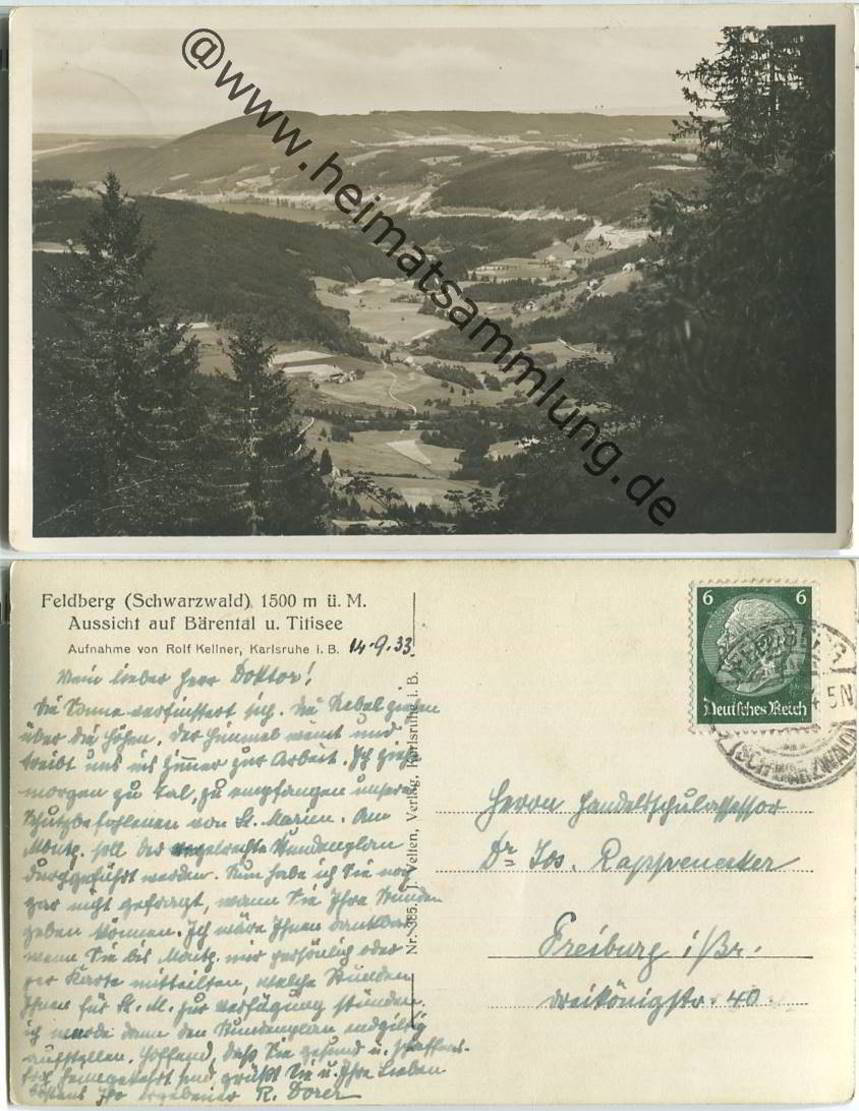 @www.heimatsammlung.de
Feldberg (Schwarzwald) 1500 m ü. M.
Aussicht auf Bärental u. Titisee
Aufnahme von Rolf Kellner, Karlsruhe i. B.
14.9.33.
Mein lieber Herr Doktor!
Die Sonne verfinstert sich. Die Nebel ziehen
über die Höhen, der Himmel weint und
treibt uns ins Zimmer zur Arbeit. Ich ziehe
morgen zu Tal, zu empfangen unsere
Schutzbefohlenen von St. Marien. Am
Mont. soll der Stundenplan
durchgeführt werden. Nun habe ich Sie noch
gar nicht gefragt, wann Sie Ihre Stunden
geben können. Ich wäre Ihnen dankbar
wenn Sie bis Mont. mir persönlich oder
per Karte mitteilten, welche Stunden
Ihnen für St. M. zur Verfügung stünden.
Ich werde dann den Stundenplan endgiltig
aufstellen. Hoffend, daß Sie gesund u. schaffens-
froh heimgekehrt sind, grüßt Sie u. Ihre Lieben
bestens Ihr ergebener R. Dorer
Nr. 385. J. Velten, Verlag, Karlsruhe i. B.
6 6
Deutsches Reich
FELDBERG
5N
(SCHWARZWALD)
Herrn Handelsschulassessor
Dr Jos. Rappenecker
Freiburg i/Br.
Dreikönigstr. 40